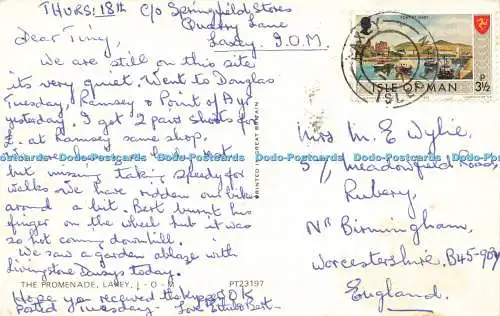 THURS: 18th c/o Springfield Stores
Quarry Lane
Laxey I.O.M.
Dear Tiny,
We are still on this site
its very quiet. Went to Douglas
Tuesday, Ramsey & Point of Ayr
yesterday. I got 2 pair shoes for
at Ramsey same shop.
but missing taking Speedy for
walks. We have ridden our bikes
around a bit. Bert burnt his
finger on the wheel hub it was
so hot coming downhill.
We saw a garden ablaze with
Livingstone Daisys today.
THE PROMENADE, LAXEY, I-O-M
PT23197
Hope you received the keys O.K.
Posted Tuesday. Love Bert
PRINTED IN GREAT BRITAIN
PORT ST. MARY
ISLE OF MAN
3½ P
Mrs M E Wylie,
57 Meadowfield Road,
Rubery,
Nr Birmingham,
Worcestershire. B45-90Y
England.
Dodo-Postcards Dodo-Postcards Dodo-Postcards Dodo-Postcards Dodo-Postcards